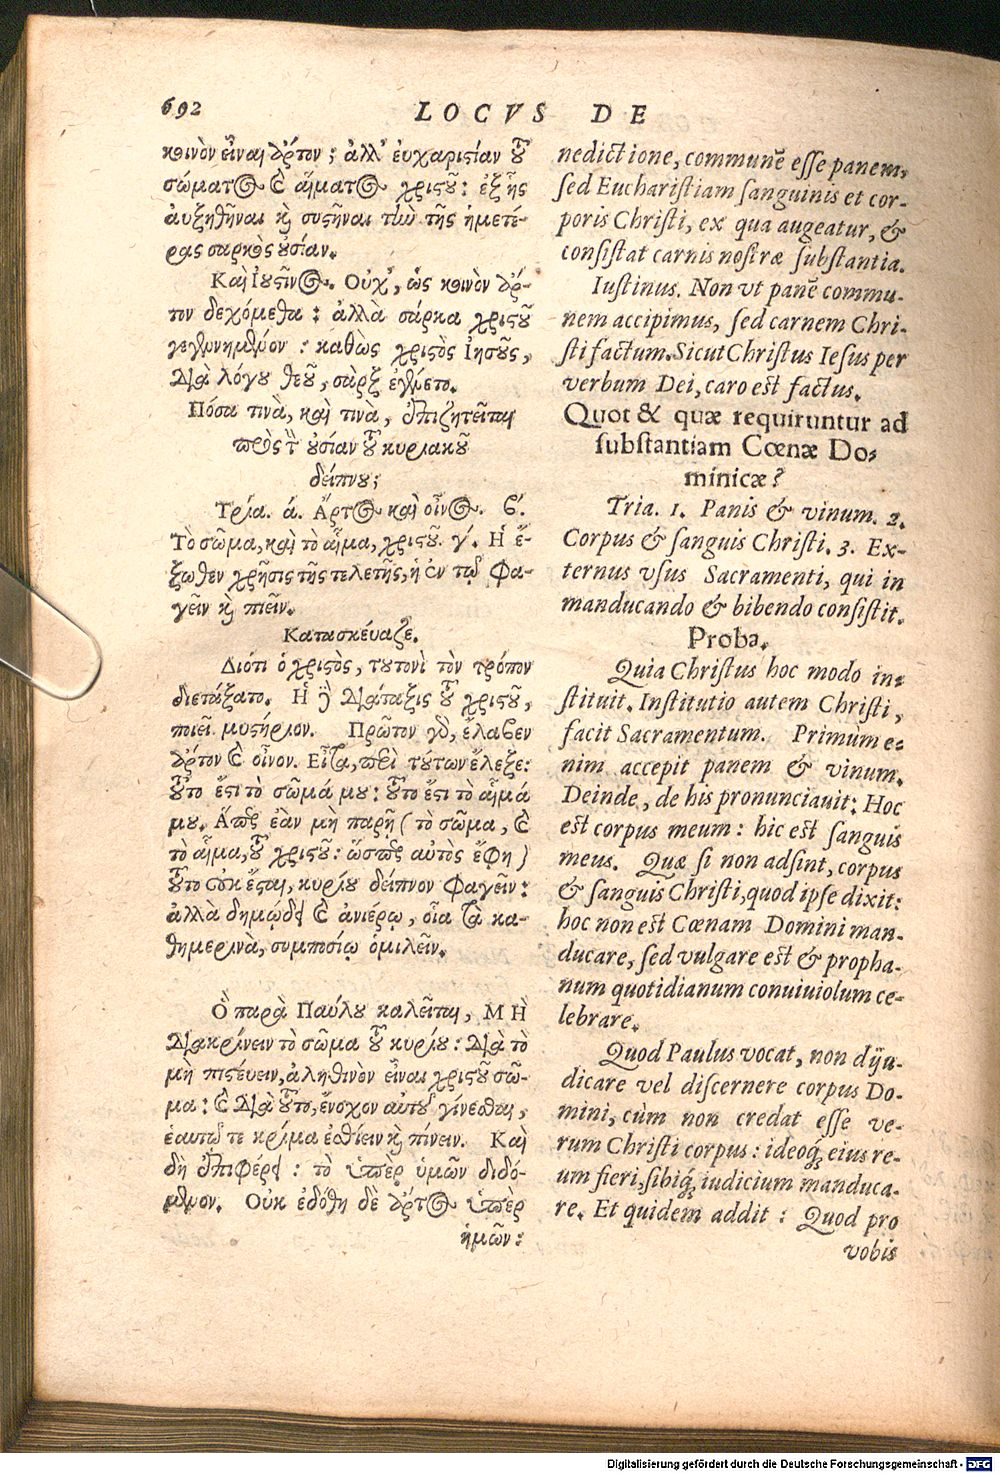 692
LOCVS DE
κοινὸν εἶναι ἄρτον; ἀλλ' ἐυχαριστίαν τοῦ
σώματος καὶ αἵματος χριστοῦ: ἐξ ἧς
ἀυξηθῆναι καὶ συστῆναι τὴν τῆς ἡμετέ-
ρας σαρκὸς οὐσίαν.
Καὶ Ἰουστῖνος. Οὐχ, ὡς κοινὸν ἄρ-
τον δεχόμεθα: ἀλλὰ σάρκα χριστοῦ
γεγενημένον: καθὼς χριστὸς Ἰησοῦς,
διὰ λόγου θεοῦ, σὰρξ ἐγένετο.
Πόσα τινὰ, καὶ τινὰ, ἐπιζητεῖται
πρὸς τὴν οὐσίαν τοῦ κυριακοῦ
δείπνου;
Τρία. ά. Ἄρτος καὶ οἶνος. β́.
Τὸ σῶμα, καὶ τὸ αἷμα, χριστοῦ. γ́. Ἡ ἔ-
ξωθεν χρῆσις τῆς τελετῆς, ἡ ἐν τῷ φα-
γεῖν καὶ πιεῖν.
Κατασκέυαζε.
Διότι ὁ χριστὸς, τουτονὶ τὸν τρόπον
διετάξατο. Ἡ γὰρ διάταξις τοῦ χριστοῦ,
ποιεῖ μυστήριον. Πρῶτον γὰρ, ἔλαβεν
ἄρτον καὶ οἶνον. Εἶτα, περὶ τούτων ἔλεξε:
τοῦτο ἔστι τὸ σῶμά μου: τοῦτο ἔστι τὸ αἷμά
μου. Ἅπερ ἐὰν μὴ παρῇ (τὸ σῶμα, καὶ
τὸ αἷμα, τοῦ χριστοῦ: ὥσπερ αὐτὸς ἔφη)
τοῦτο οὐκ ἔσται, κυρίου δείπνον φαγεῖν:
ἀλλὰ δημώδει καὶ ἀνιέρῳ, οἷα τὰ κα-
θημερινὰ, συμποσίῳ ὁμιλεῖν.
Ὃ παρὰ Παύλου καλεῖται, ΜῊ
διακρίνειν τὸ σῶμα τοῦ κυρίου: διὰ τὸ
μὴ πιστέυειν, ἀληθινὸν εἶναι χριστοῦ σῶ-
μα: καὶ διὰ τοῦτο, ἔνοχον αὐτοῦ γίνεσθαι,
ἑαυτῷ τε κρίμα ἐσθίειν καὶ πίνειν. Καὶ
δὴ ἐπιφέρει: τὸ ὑπὲρ ὑμῶν διδό-
μενον. Οὐκ ἐδόθη δὲ ἄρτος ὑπὲρ
ἡμῶν:
nedictione, communē esse panem,
sed Eucharistiam sanguinis et cor-
poris Christi, ex qua augeatur, &
consistat carnis nostræ substantia.
Iustinus. Non vt panē commu-
nem accipimus, sed carnem Chri-
sti factum. Sicut Christus Iesus per
verbum Dei, caro est factus.
Quot & quæ requiruntur ad
substantiam Cœnæ Do-
minicæ?
Tria. 1. Panis & vinum. 2.
Corpus & sanguis Christi. 3. Ex-
ternus vsus Sacramenti, qui in
manducando & bibendo consistit.
Proba.
Quia Christus hoc modo in-
stituit. Institutio autem Christi,
facit Sacramentum. Primùm e-
nim accepit panem & vinum.
Deinde, de his pronunciauit: Hoc
est corpus meum: hic est sanguis
meus. Quæ si non adsint, corpus
& sanguis Christi, quod ipse dixit:
hoc non est Cœnam Domini man-
ducare, sed vulgare est & propha-
num quotidianum conuiuiolum ce-
lebrare.
Quod Paulus vocat, non diju-
dicare vel discernere corpus Do-
mini, cùm non credat esse ve-
rum Christi corpus: ideoq́; eius re-
um fieri, sibiq́; iudicium manduca-
re. Et quidem addit: Quod pro
vobis
Digitalisierung gefördert durch die Deutsche Forschungsgemeinschaft - DFG